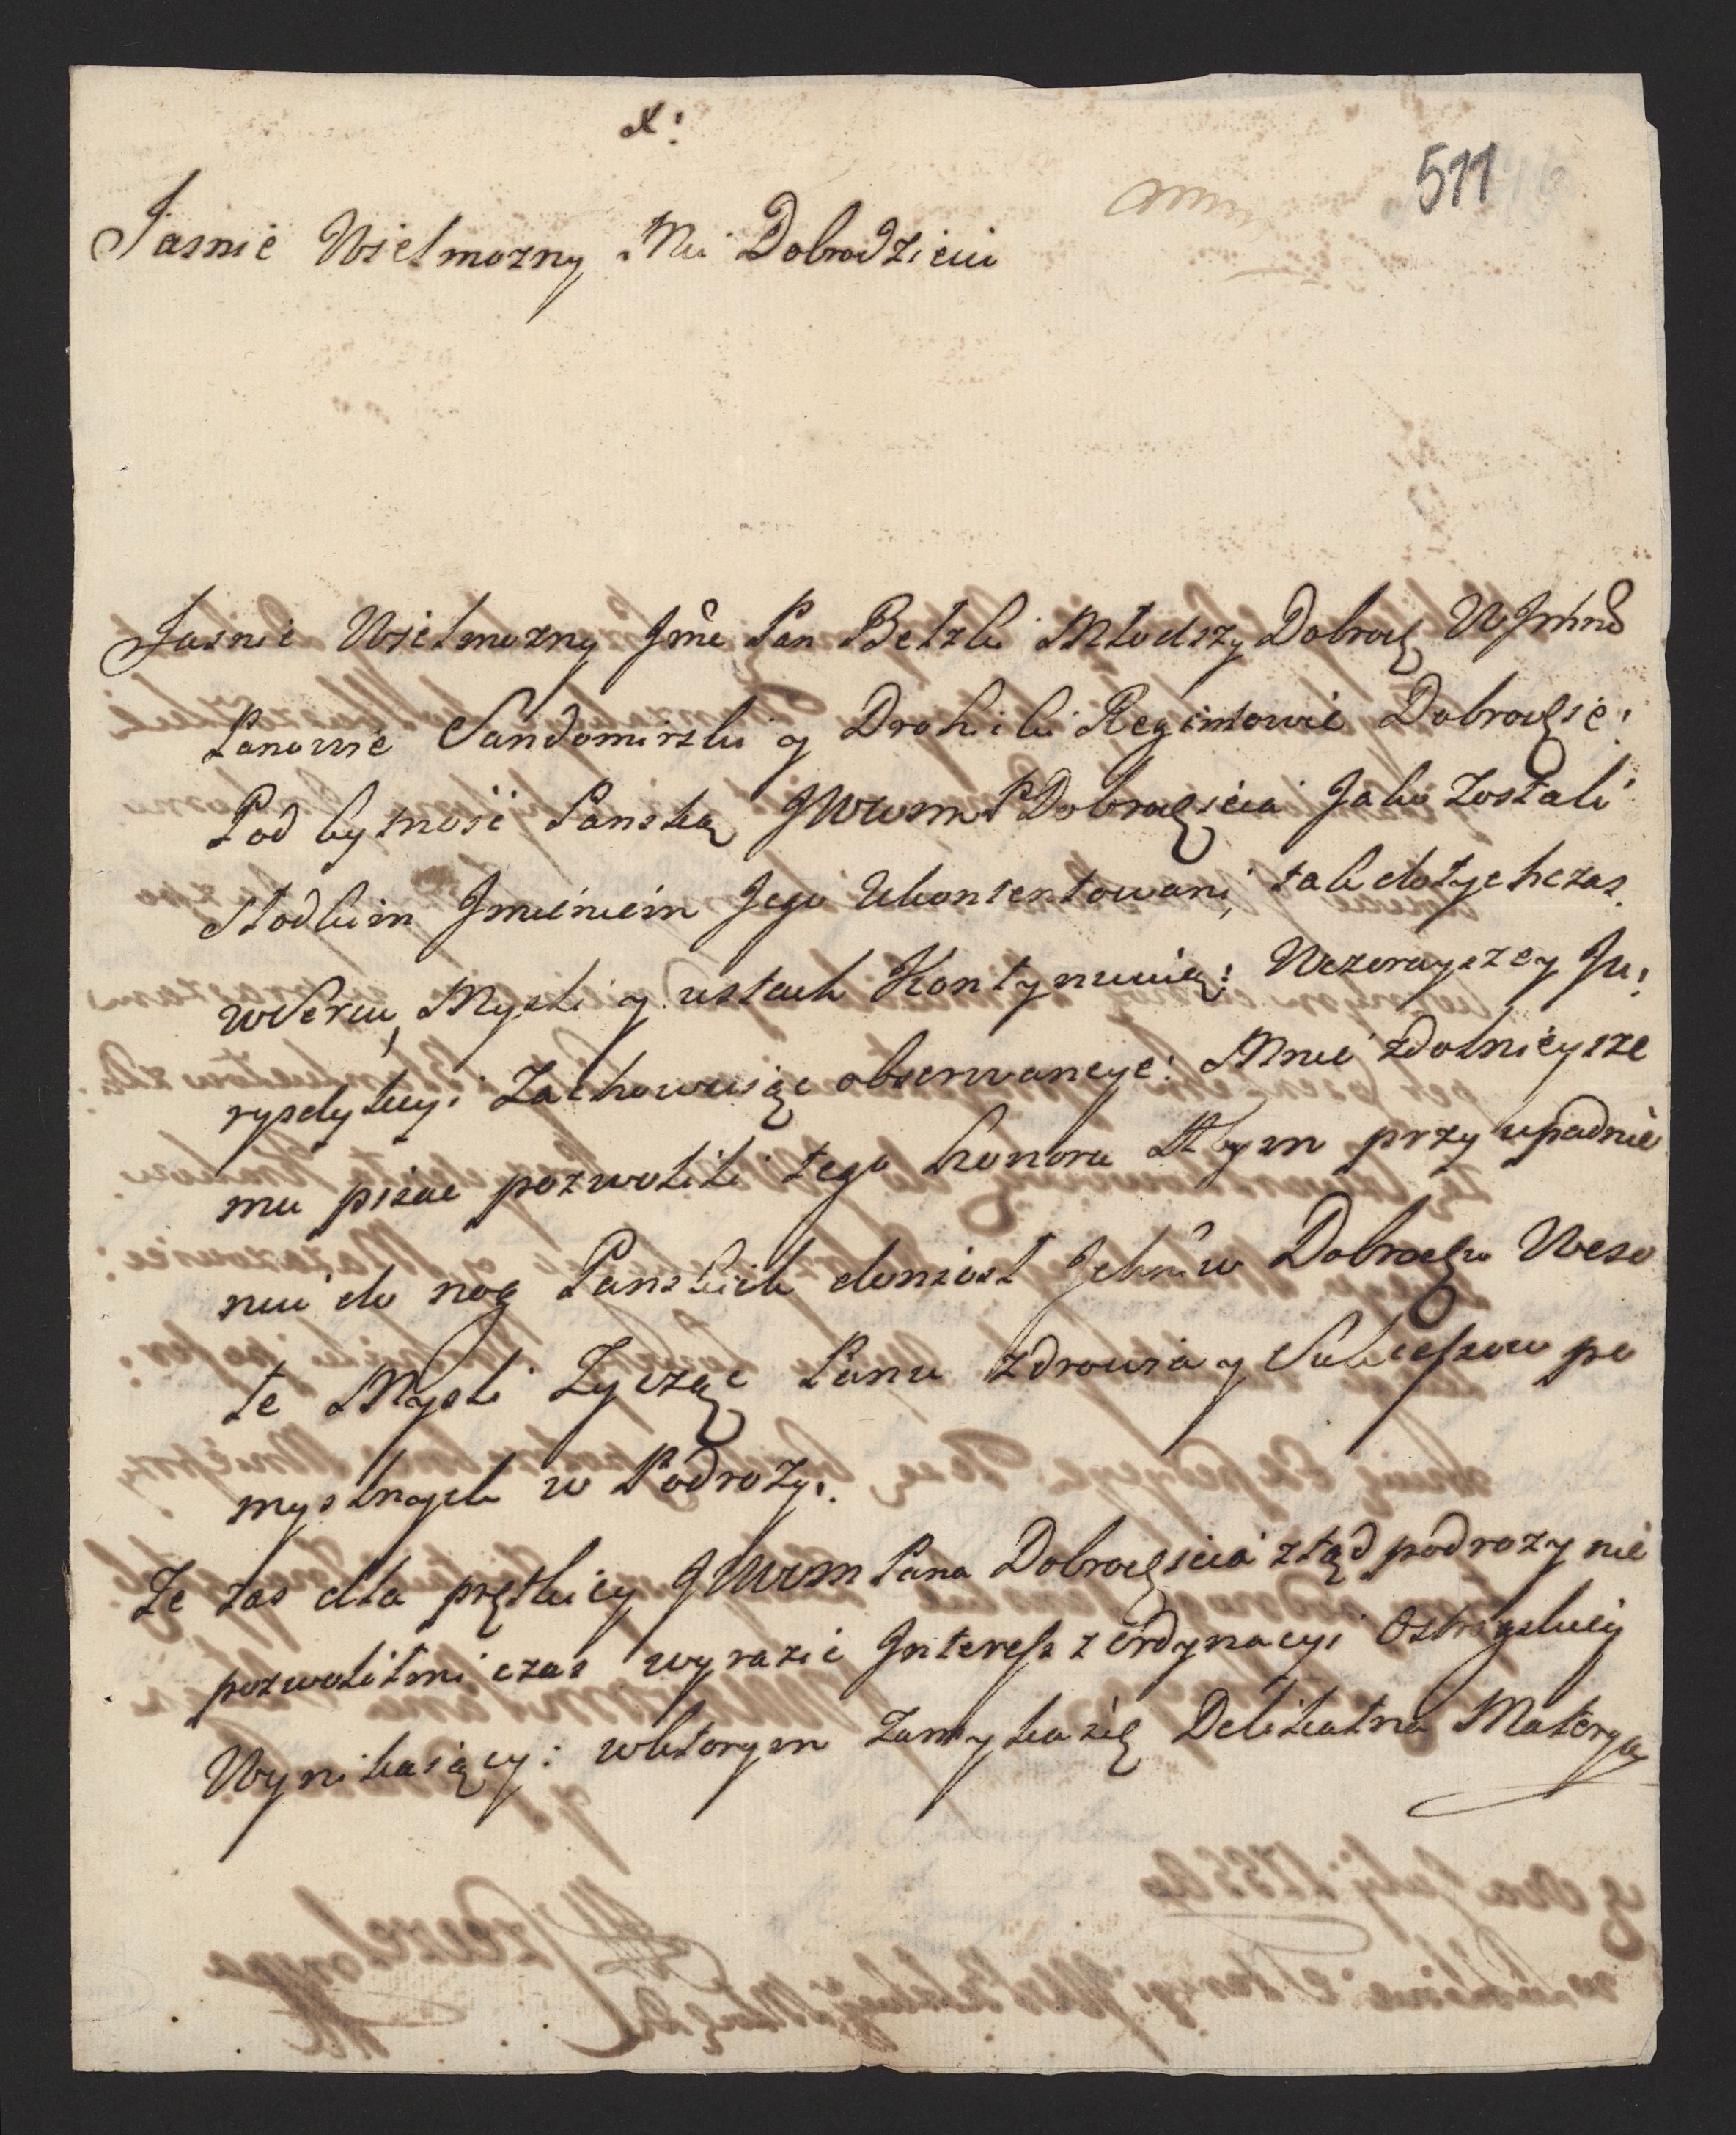 X:
511
Jasnie Wielmozny Mci Dobrodzieiu
Jasnie Wielmozny Jmc Pan Bełzki Młodszy Dobrodz
Panowie Sandomirski y Drohicki Regimtowie Dobrodzie:
Pod bytnosć Panską JWWM P Dobrodzieia Jako zostali
słodkim Jmieniem Jego Ukontentowani, tak dotychczas
w Sercu, Mysli y ustach Kontynuuią: Wczorayszey Ju:
rysdykcyi Zachowuiąc obserwancye: Mnie zdolnieysze
mu pisac pozwolili tego honoru Abym przy upadnie
niu do nog Panskich doniosł Ichmciw Dobrodzw Weso
łe Mysli Zycząc Panu zdrowia y Sukcessow po
myslnych w Podrozy.
Ze zas dla prętkiey JWWM Pana Dobrodzieia ztąd podrozy nie
pozwolił mi czas wyrazic Interess z Ordynacyi Ostrogskiey
Wynikaiący: w ktorym zamyka się Delikatna Materya